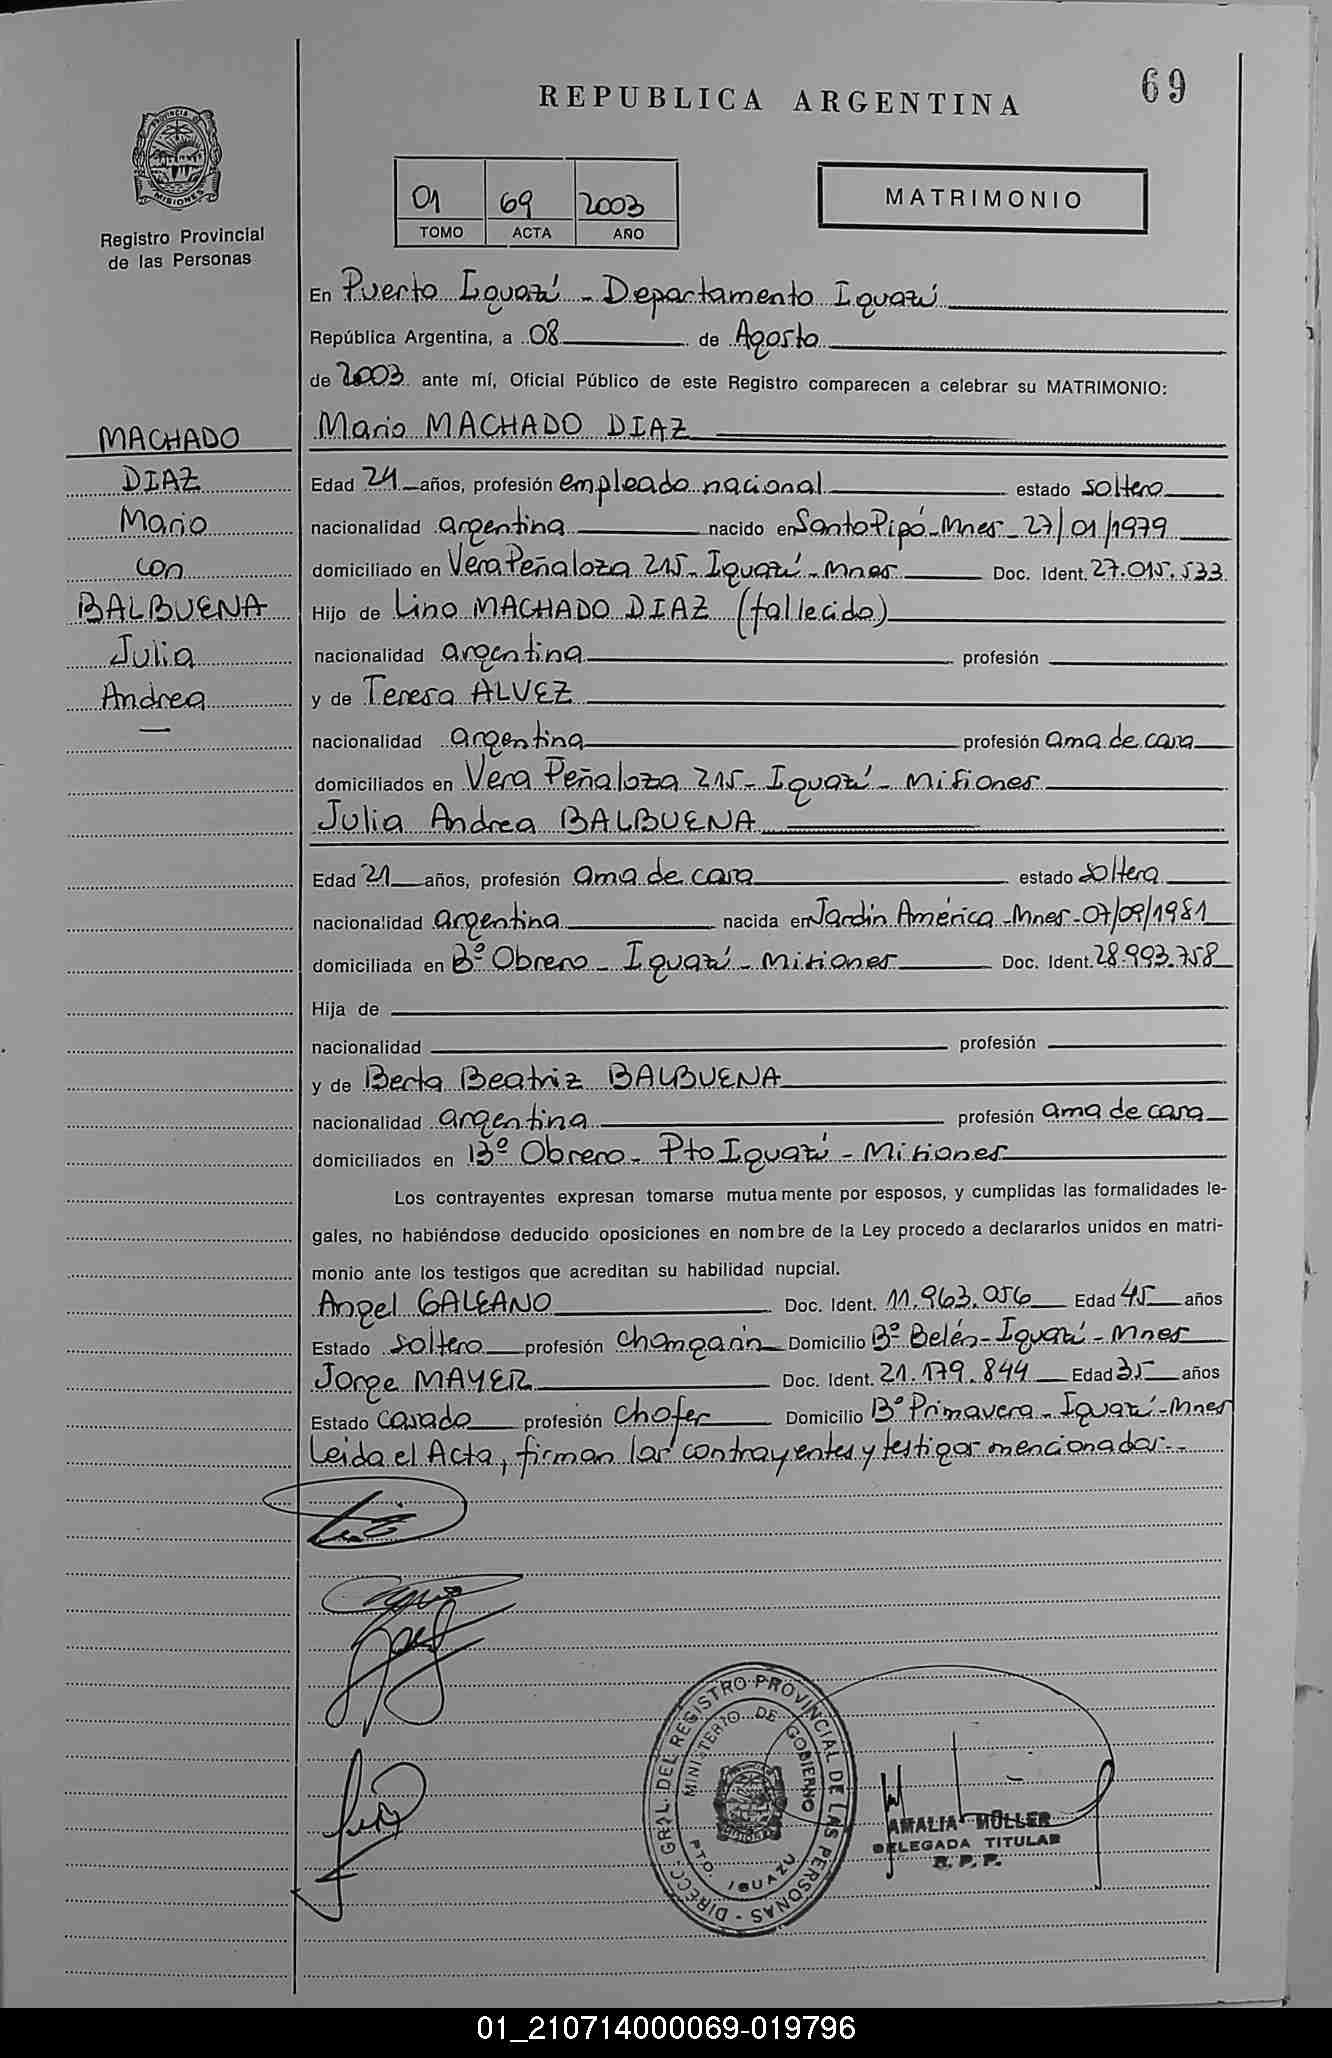 69
REPUBLICA ARGENTINA
PROVINCIA DE
MISIONES
Registro Provincial
de las Personas
01 69 2003
TOMO ACTA AÑO
MATRIMONIO
En Puerto Iguazú - Departamento Iguazú
República Argentina, a 08 de Agosto
de 2003 ante mí, Oficial Público de este Registro comparecen a celebrar su MATRIMONIO:
MACHADO
DIAZ
Mario
con
BALBUENA
Julia
Andrea
Mario MACHADO DIAZ
Edad 24 años, profesión empleado nacional estado soltero
nacionalidad argentina nacido en Santo Pipó - Mnes - 27/01/1979
domiciliado en Vera Peñaloza 215 - Iguazú - Mnes Doc. Ident. 27.015.533
Hijo de Lino MACHADO DIAZ (fallecido)
nacionalidad argentina profesión
y de Teresa ALVEZ
nacionalidad argentina profesión ama de casa
domiciliados en Vera Peñaloza 215 - Iguazú - Misiones
Julia Andrea BALBUENA
Edad 21 años, profesión ama de casa estado soltera
nacionalidad argentina nacida en Jardín América - Mnes - 07/09/1981
domiciliada en Bº Obrero - Iguazú - Misiones Doc. Ident. 28.993.758
Hija de
nacionalidad profesión
y de Berta Beatriz BALBUENA
nacionalidad argentina profesión ama de casa
domiciliados en Bº Obrero - Pto Iguazú - Misiones
Los contrayentes expresan tomarse mutuamente por esposos, y cumplidas las formalidades le-
gales, no habiéndose deducido oposiciones en nombre de la Ley procedo a declararlos unidos en matri-
monio ante los testigos que acreditan su habilidad nupcial.
Angel GALEANO Doc. Ident. 11.963.056 Edad 45 años
Estado soltero profesión changarín Domicilio Bº Belén - Iguazú - Mnes
Jorge MAYER Doc. Ident. 21.179.844 Edad 35 años
Estado casado profesión chofer Domicilio Bº Primavera - Iguazú - Mnes
Leida el Acta, firman los contrayentes y testigos mencionados.-
DIRECC. GRAL. DEL REGISTRO PROVINCIAL DE LAS PERSONAS -
MINISTERIO DE GOBIERNO
PTO. IGUAZU
AMALIA MÜLLER
DELEGADA TITULAR
R. P. P.
01_210714000069-019796